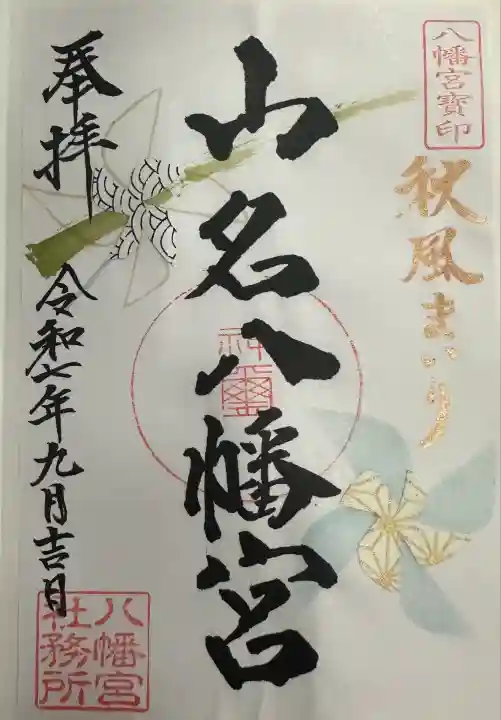 八幡宮寳印
秋風まいり
山名八幡宮
神璽
奉拝
令和七年九月吉日
八幡宮
社務所